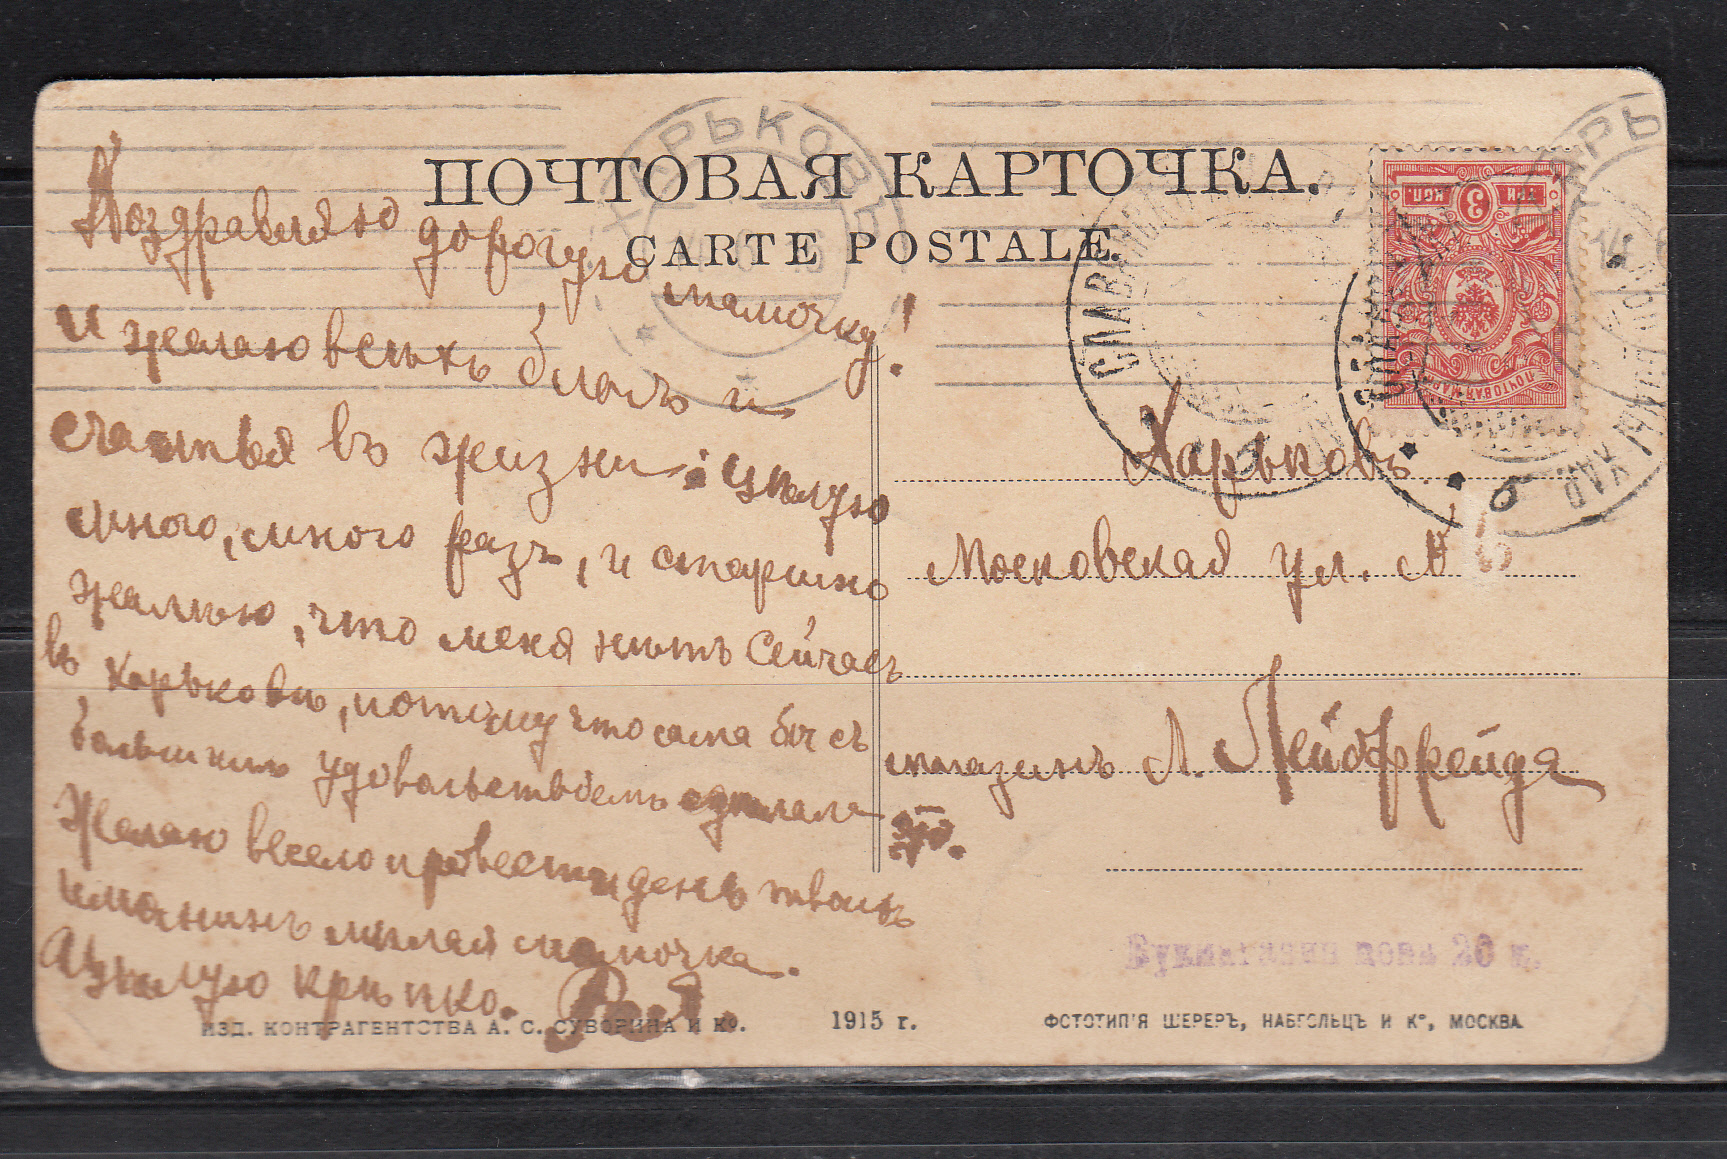 ПОЧТОВАЯ КАРТОЧКА.
CARTE POSTALE.
ХАРЬКОВЪ
СЛАВ
3
КОП
ПОЧТОВАЯ МАРКА
Поздравляю дорогую мамочку!
и желаю всѣхъ благъ и
счастья въ жизни; цѣлую
много, много разъ, и страшно
жалѣю, что меня нѣтъ сейчасъ
въ Харьковѣ, потому что сама бы съ
большимъ удовольствіемъ сдѣлала
это.
Желаю весело провести день твоихъ
имянинъ милая мамочка.
Цѣлую крѣпко.
Харьковъ.
Московская ул. №
магазинъ Л. Лейбфрейда
Букмагазин цена 20 к.
ИЗД. КОНТРАГЕНТСТВА А. С. СУВОРИНА И Ко.
1915 г.
ФОТОТИПІЯ ШЕРЕРЪ, НАБГОЛЬЦЪ И Ко, МОСКВА